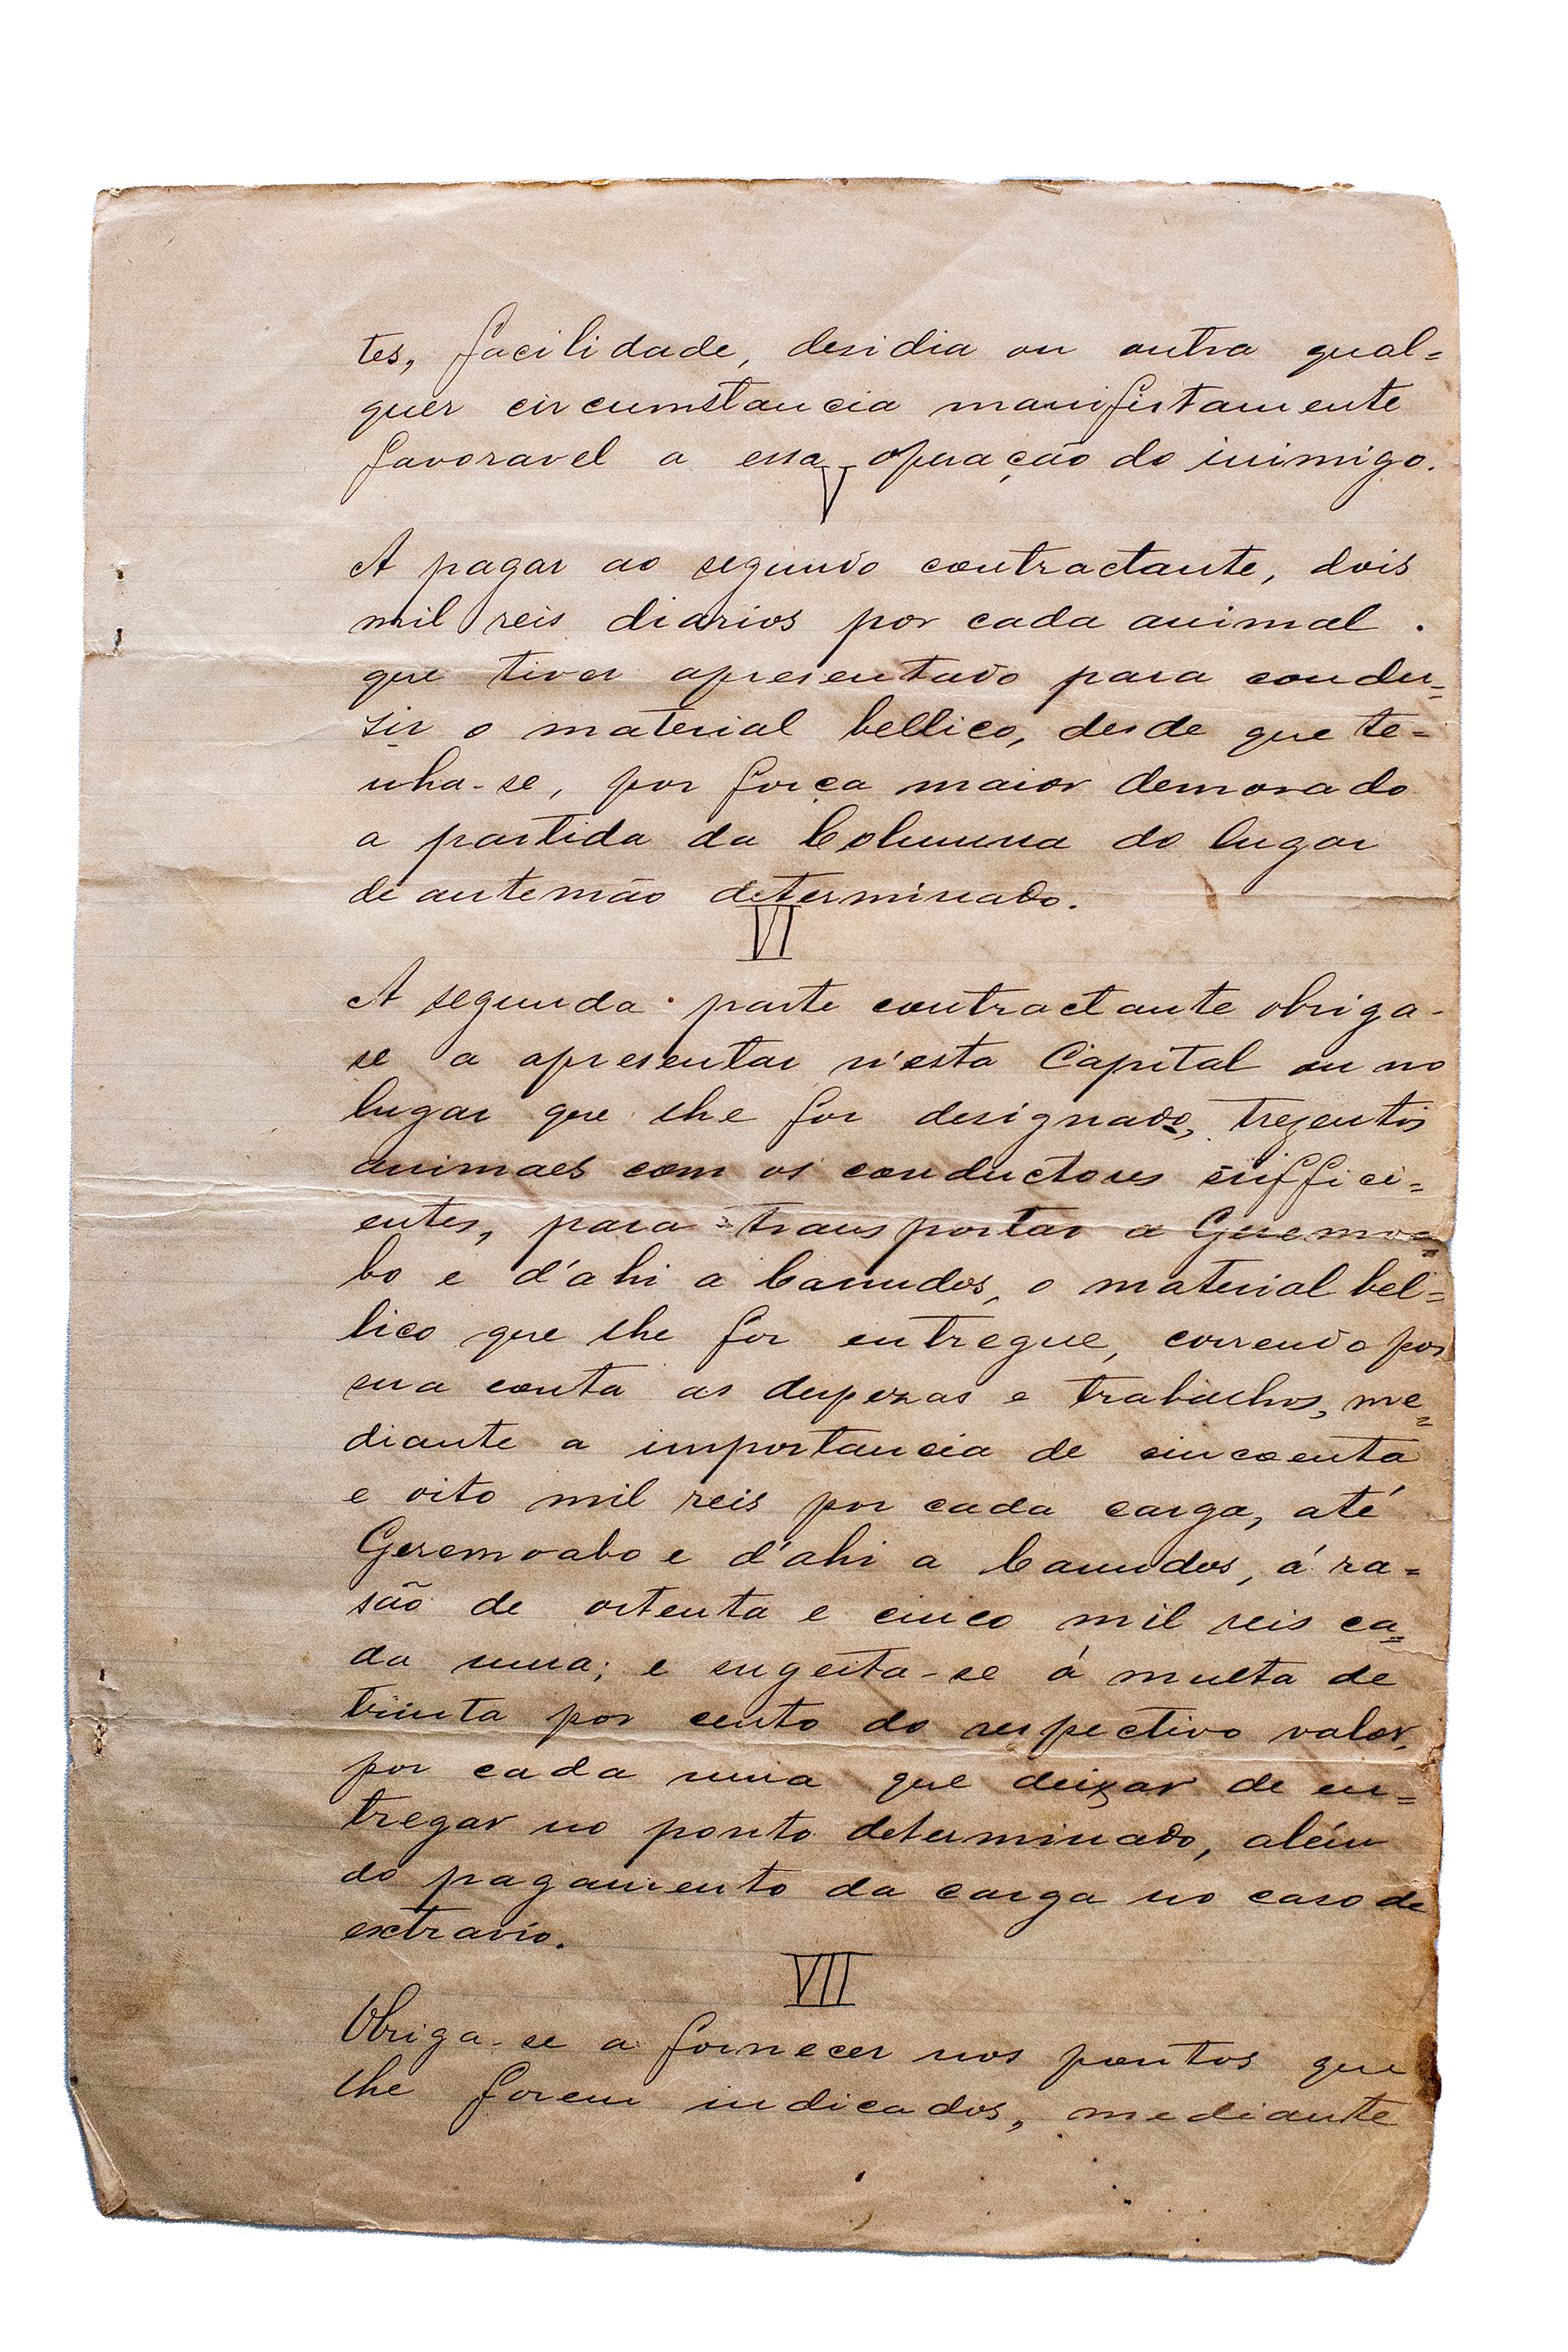 tes, facilidade, desidia ou outra qual=
quer circumstancia manifestamente
favoravel a essa operação do inimigo.
V
A pagar ao segundo contractante, dois
mil reis diarios por cada animal.
que tiver apresentado para condu=
sir o material bellico, desde que te=
nha-se, por força maior demorado
a partida da Columna do lugar
de antemão determinado.
VI
A segunda parte contractante obriga-
se a apresentar n'esta Capital ou no
lugar que lhe for designado, trezentos
animaes com os conductores suffici=
entes, para transportar a Geremoa=
bo e d'ahi a Canudos, o material bel=
lico que lhe for entregue, correndo por
sua conta as despezas e trabalhos, me=
diante a importancia de cincoenta
e oito mil reis por cada carga, até
Geremoabo e d'ahi a Canudos, á ra=
são de oitenta e cinco mil reis ca=
da uma; e sugeita-se á multa de
trinta por cento do respectivo valor,
por cada uma que deixar de en=
tregar no ponto determinado, além
do pagamento da carga no caso de
extravio.
VII
Obriga-se a fornecer nos pontos que
lhe forem indicados, mediante